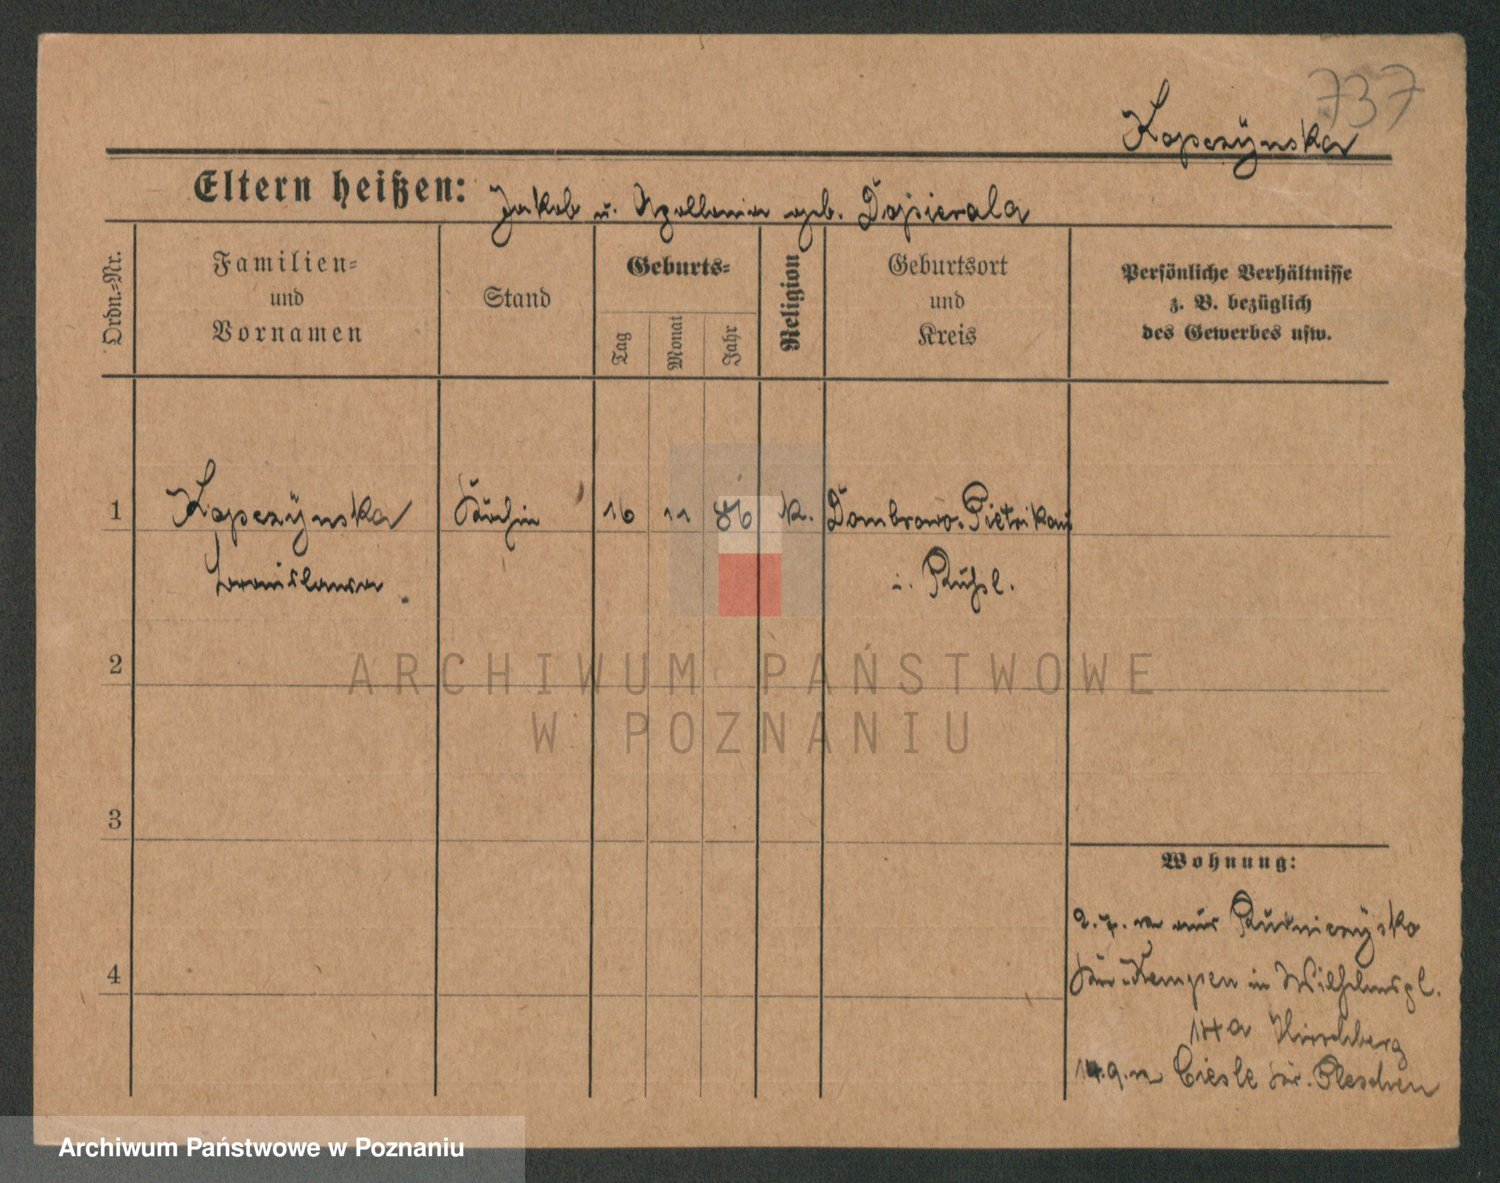 737
Kopczÿnska
Eltern heißen: Jakob u. Apollonia geb. Dopierala
Ordn.-Nr.
Familien-
und
Vornamen
Stand
Geburts-
Tag
Monat
Jahr
Religion
Geburtsort
und
Kreis
Persönliche Verhältnisse
z. B. bezüglich
des Gewerbes usw.
1
Kopczÿnska
Bronislawa
Köchin
16
11
86
k.
Dombrowo. Pietrikau
i. Rußl.
2
3
ARCHIWUM PAŃSTWOWE
W POZNANIU
Wohnung:
2.7. v. aus
Kempen in Wilhelmspl.
14a Hirschberg
4
14.9. n Ciesle Kr. Pleschen
Archiwum Państwowe w Poznaniu